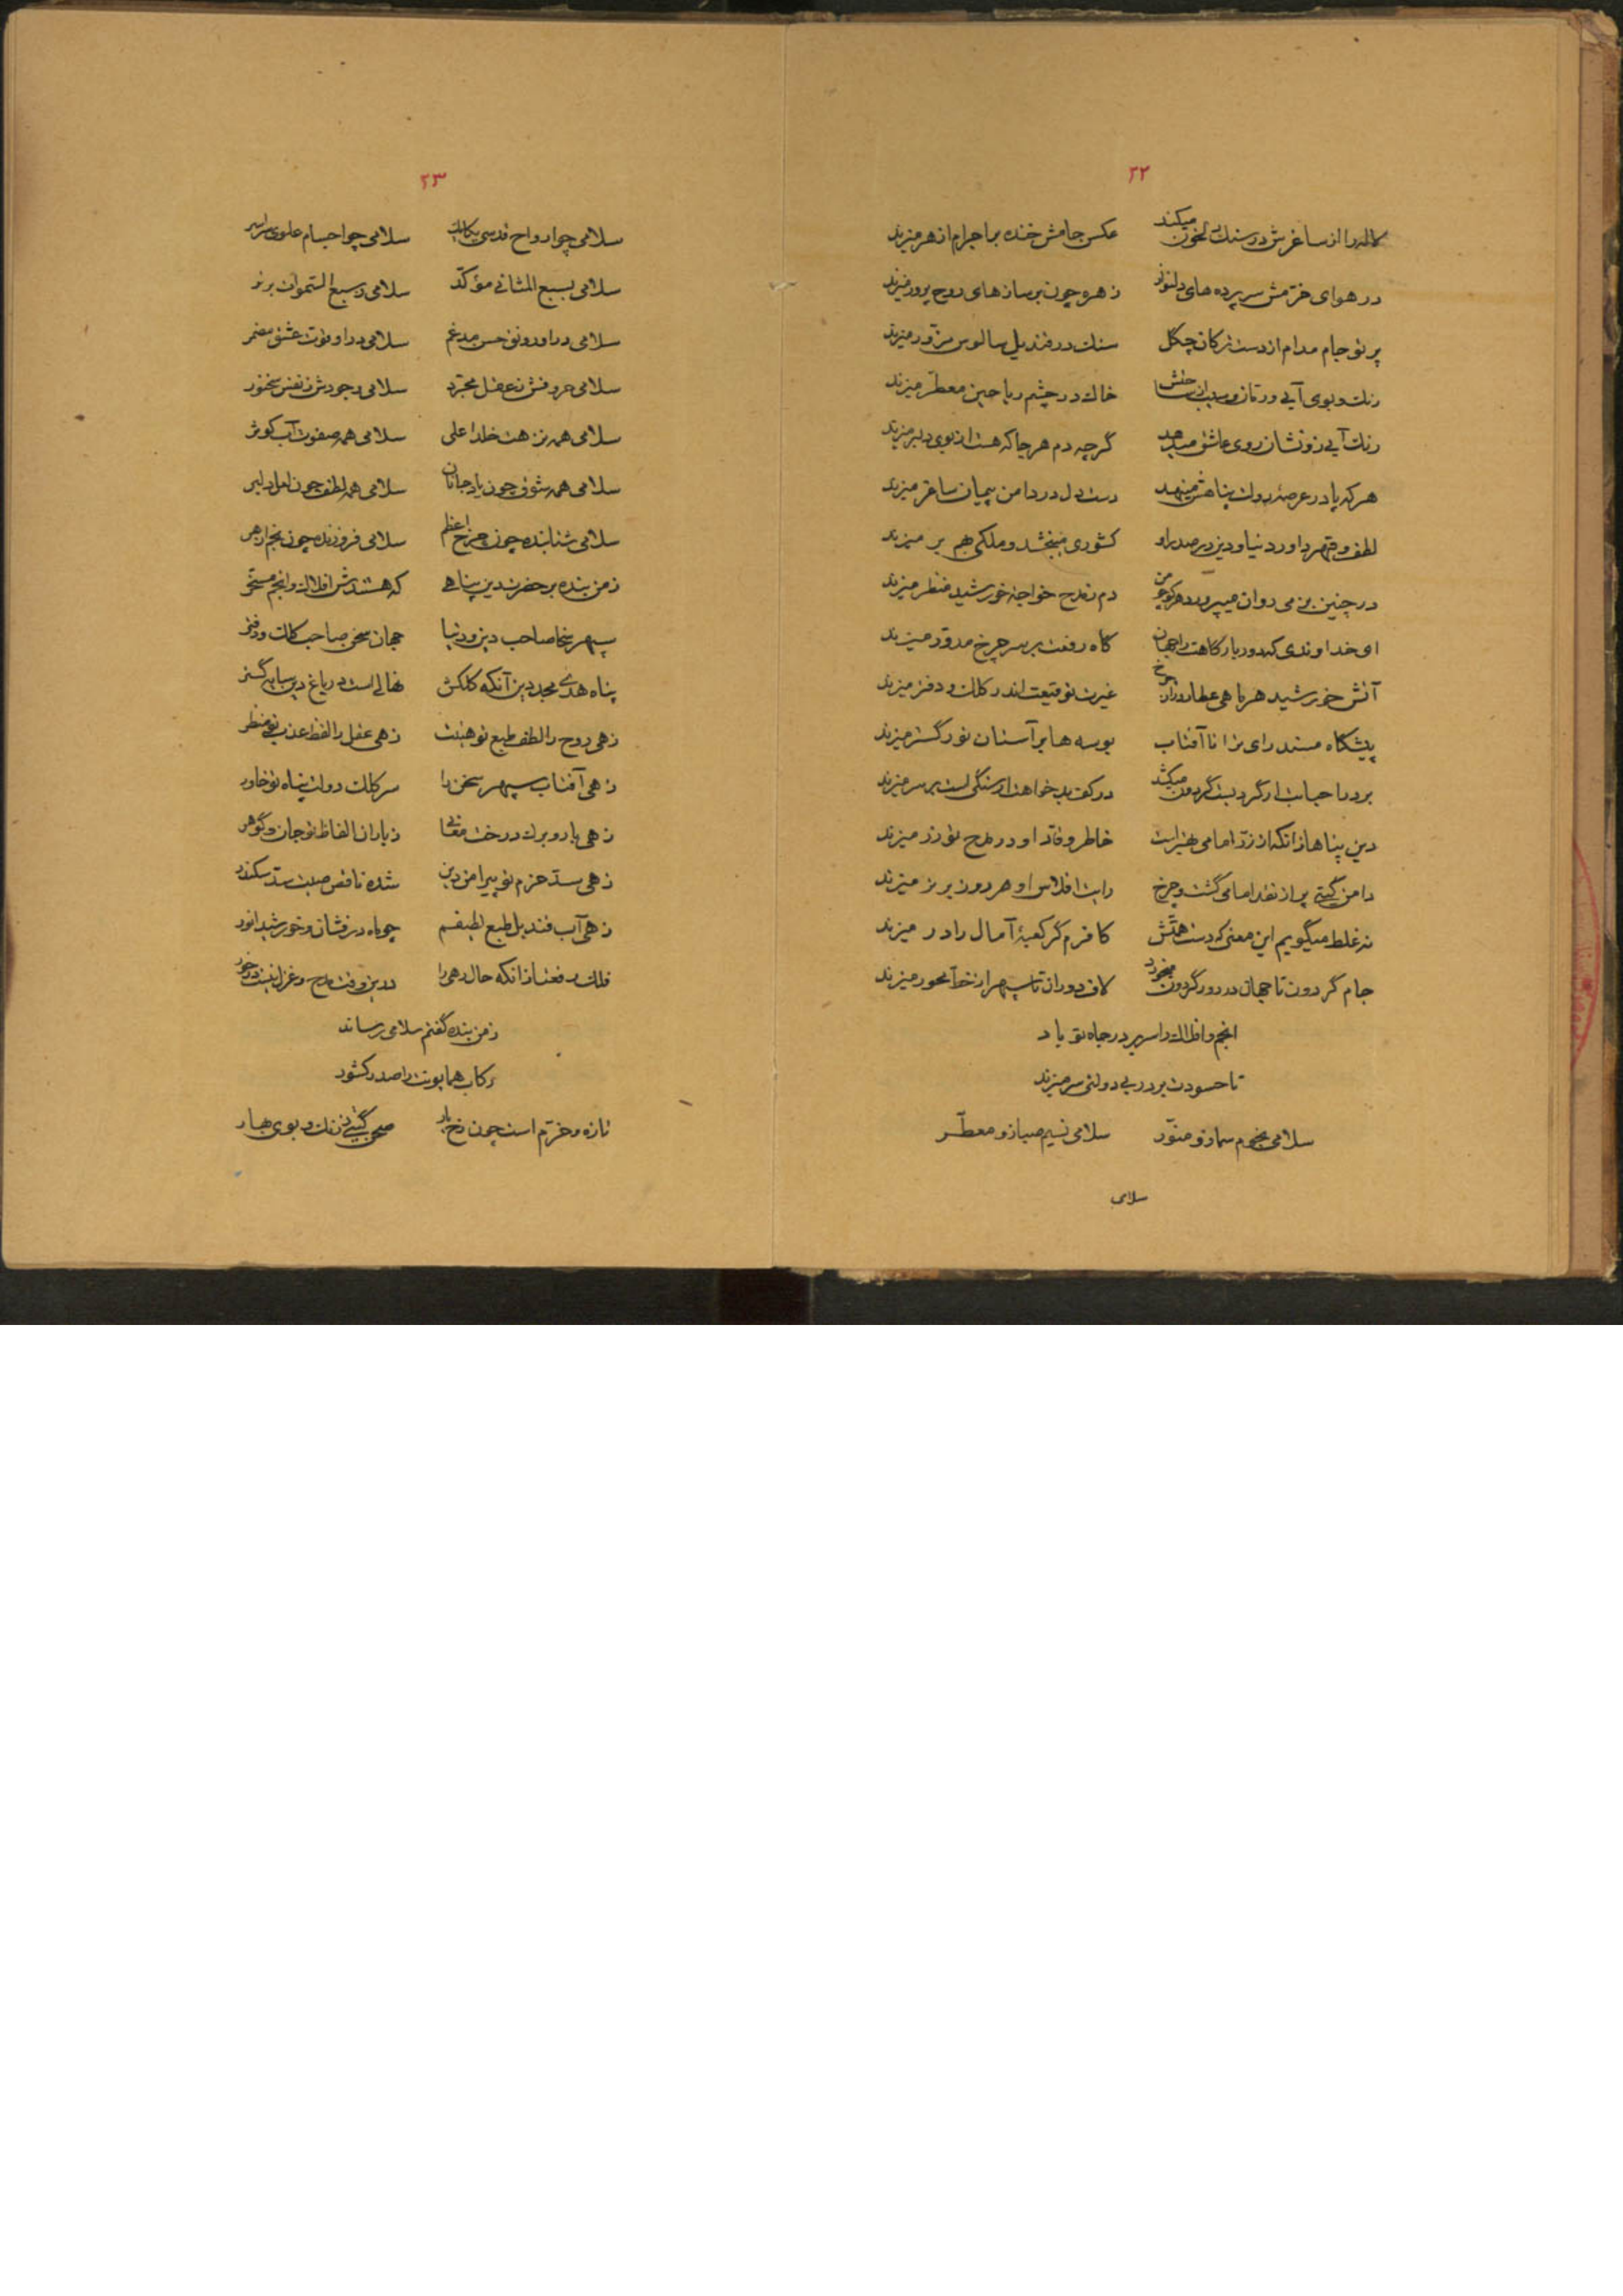 ۲۲
لاله را از ساغرش در سنگ دل خون میکند عکس جامش خنده بر اجرام ازهر میزند
در هوای خرّمش سر پرده های دلنواز زهره چون بر سازهای روح پرور میزند
پرتو جام مدام از دست ترکان چگل سنگ در قندیل سالوس مزوّر میزند
رنگ و بوی آبی و خاک در چشم ریاحین معطّر میزند
رنگ آبی زو نشان روی عاشق میدهد گرچه دم هر جا که هست از بوی دلبر میزند
هر که پا در عرصهٔ دولت پناهش مینهد دست دل در دامن پیمان ساغر میزند
لطف و قهر داور دنیا و دین در صدر او کشوری میبخشد و ملکی بهم بر میزند
در چنین بزمی روان میپرورد هر کو چو من دم ز مدح خواجهٔ خورشید منظر میزند
ای خداوندی که دور بارگاهت را جهان گاه رفعت بر سر چرخ مدوّر میزند
آتش خورشید هر ماهی عطارد را ز چرخ غیرت توقیعت اندر کلک و دفتر میزند
پیشگاه مسند رای ترا تا آفتاب بوسه ها بر آستان نورگستر میزند
در کف بدخواهت از سنگی است بر سر میزند
دین پناها زانکه از زرّ امامی بهتر است خاطر وقّاد او در مدح تو زر میزند
دامن گیتی پر از نقد امامی گشت و چرخ رایت افلاس او هر روز برتر میزند
نه غلط میگویم این معنی که دست همّتش کافرم گر کعبهٔ آمال را در میزند
جام گردون تا جهان در دور گردون میخورد لاف دوران تا سپهر از خطّ محور میزند
انجم و افلاک را سر بر در جاه تو باد
تا حسودت بر در بی دولتی سر میزند
سلامی نجوم سما زو منوّر سلامی نسیم صبا زو معطّر
سلامی
۲۳
سلامی چو ارواح قدسی سلامی چو اجسام علوی سراسر
سلامی بسبع المثانی مؤکّد سلامی ز سبع السّموات برتر
سلامی در او رونق حسن مدغم سلامی در او قوّت عشق مضمر
سلامی حروفش ز عقل مجرّد سلامی وجودش ز نفس سخنور
سلامی همه نزهت خلد اعلی سلامی همه صفوت آب کوثر
سلامی همه شوق چون یاد جانان سلامی همه لطف چون لعل دلبر
سلامی شتابنده چون چرخ اعظم سلامی فروزنده چون نجم ازهر
ز من بنده بر حضرت دین پناهی که هستندش افلاک و انجم مسخّر
سپهر سخا صاحب دین و دنیا جهان سخن صاحب کلک و دفتر
پناه هدی مجد دین آنکه کلکش نهالی است در باغ دین سایه گستر
زهی روح را لطف طبع تو هیئت زهی عقل را لفظ عذب تو منظر
زهی آفتاب سپهر سخن را سر کلک دولت پناه تو خاور
زهی بار و برگ درخت معانی ز باران الفاظ تو جان و گوهر
زهی سدّ حزم تو پیرامن دین شده ناقص صیت سدّ سکندر
زهی آب قندیل طبع لطیفم چو ماه درفشان و خورشید انور
فلک رفعتا زانکه حال رهی را درین وقت مدح و غزل نیست در خور
ز من بنده گفتم سلامی رساند
رکاب همایونت را صدر کشور
تازه و خرّم است چون رخ یار صحن گیتی ز رنگ و بوی بهار